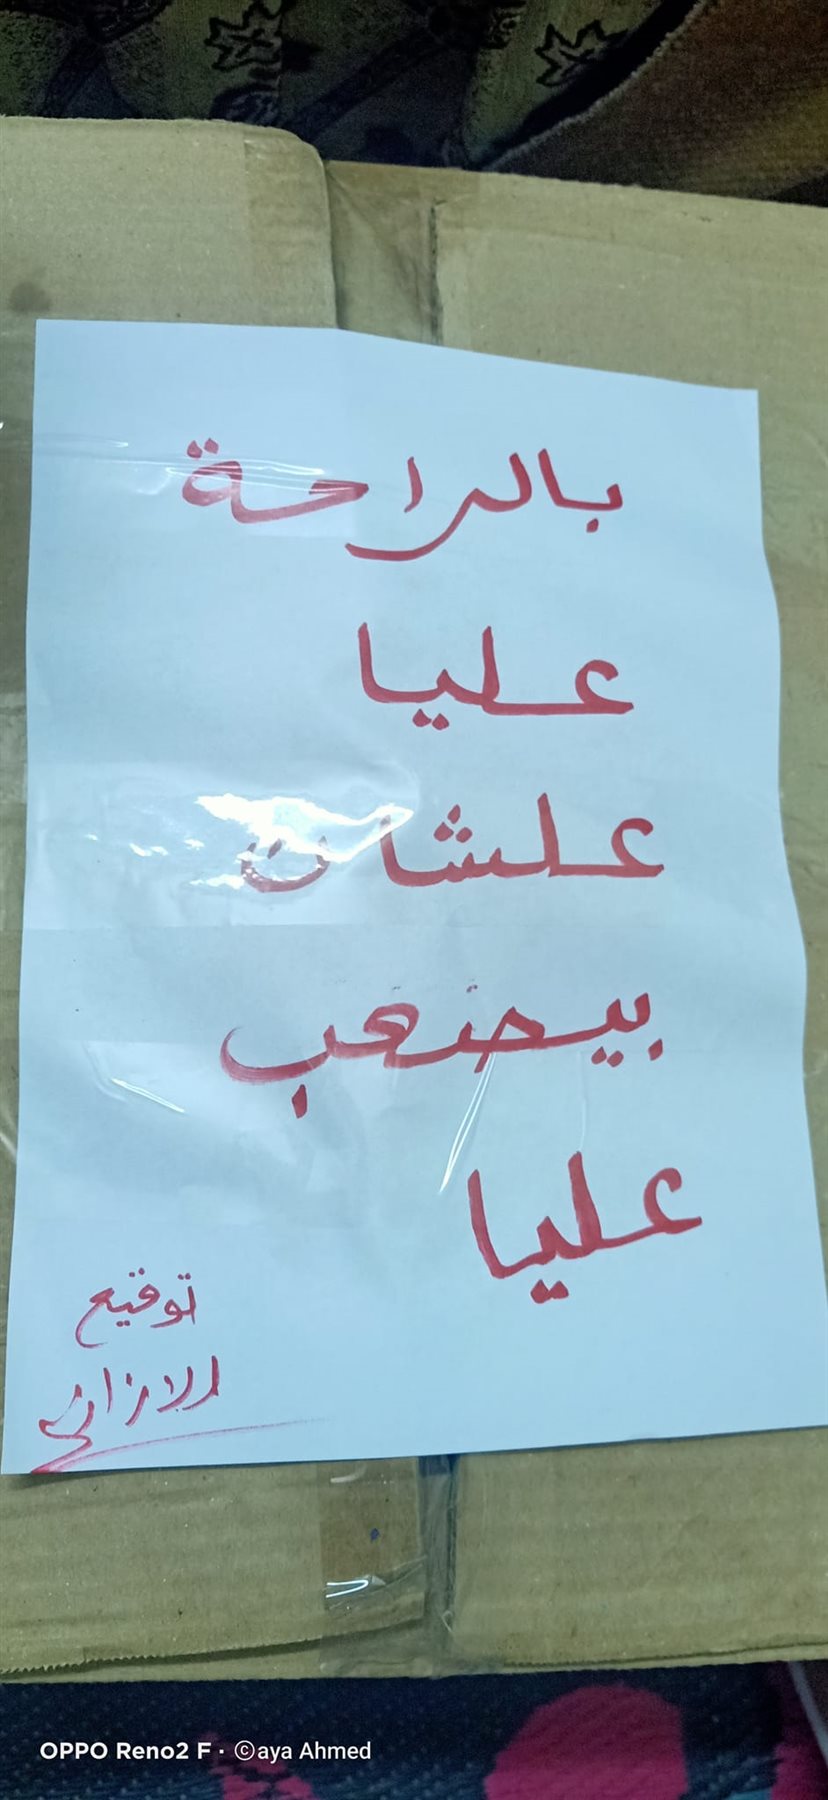 بالراحة
عليا
علشان
بيصعب
عليا
توقيع
الازاز
OPPO Reno2 F · ©aya Ahmed